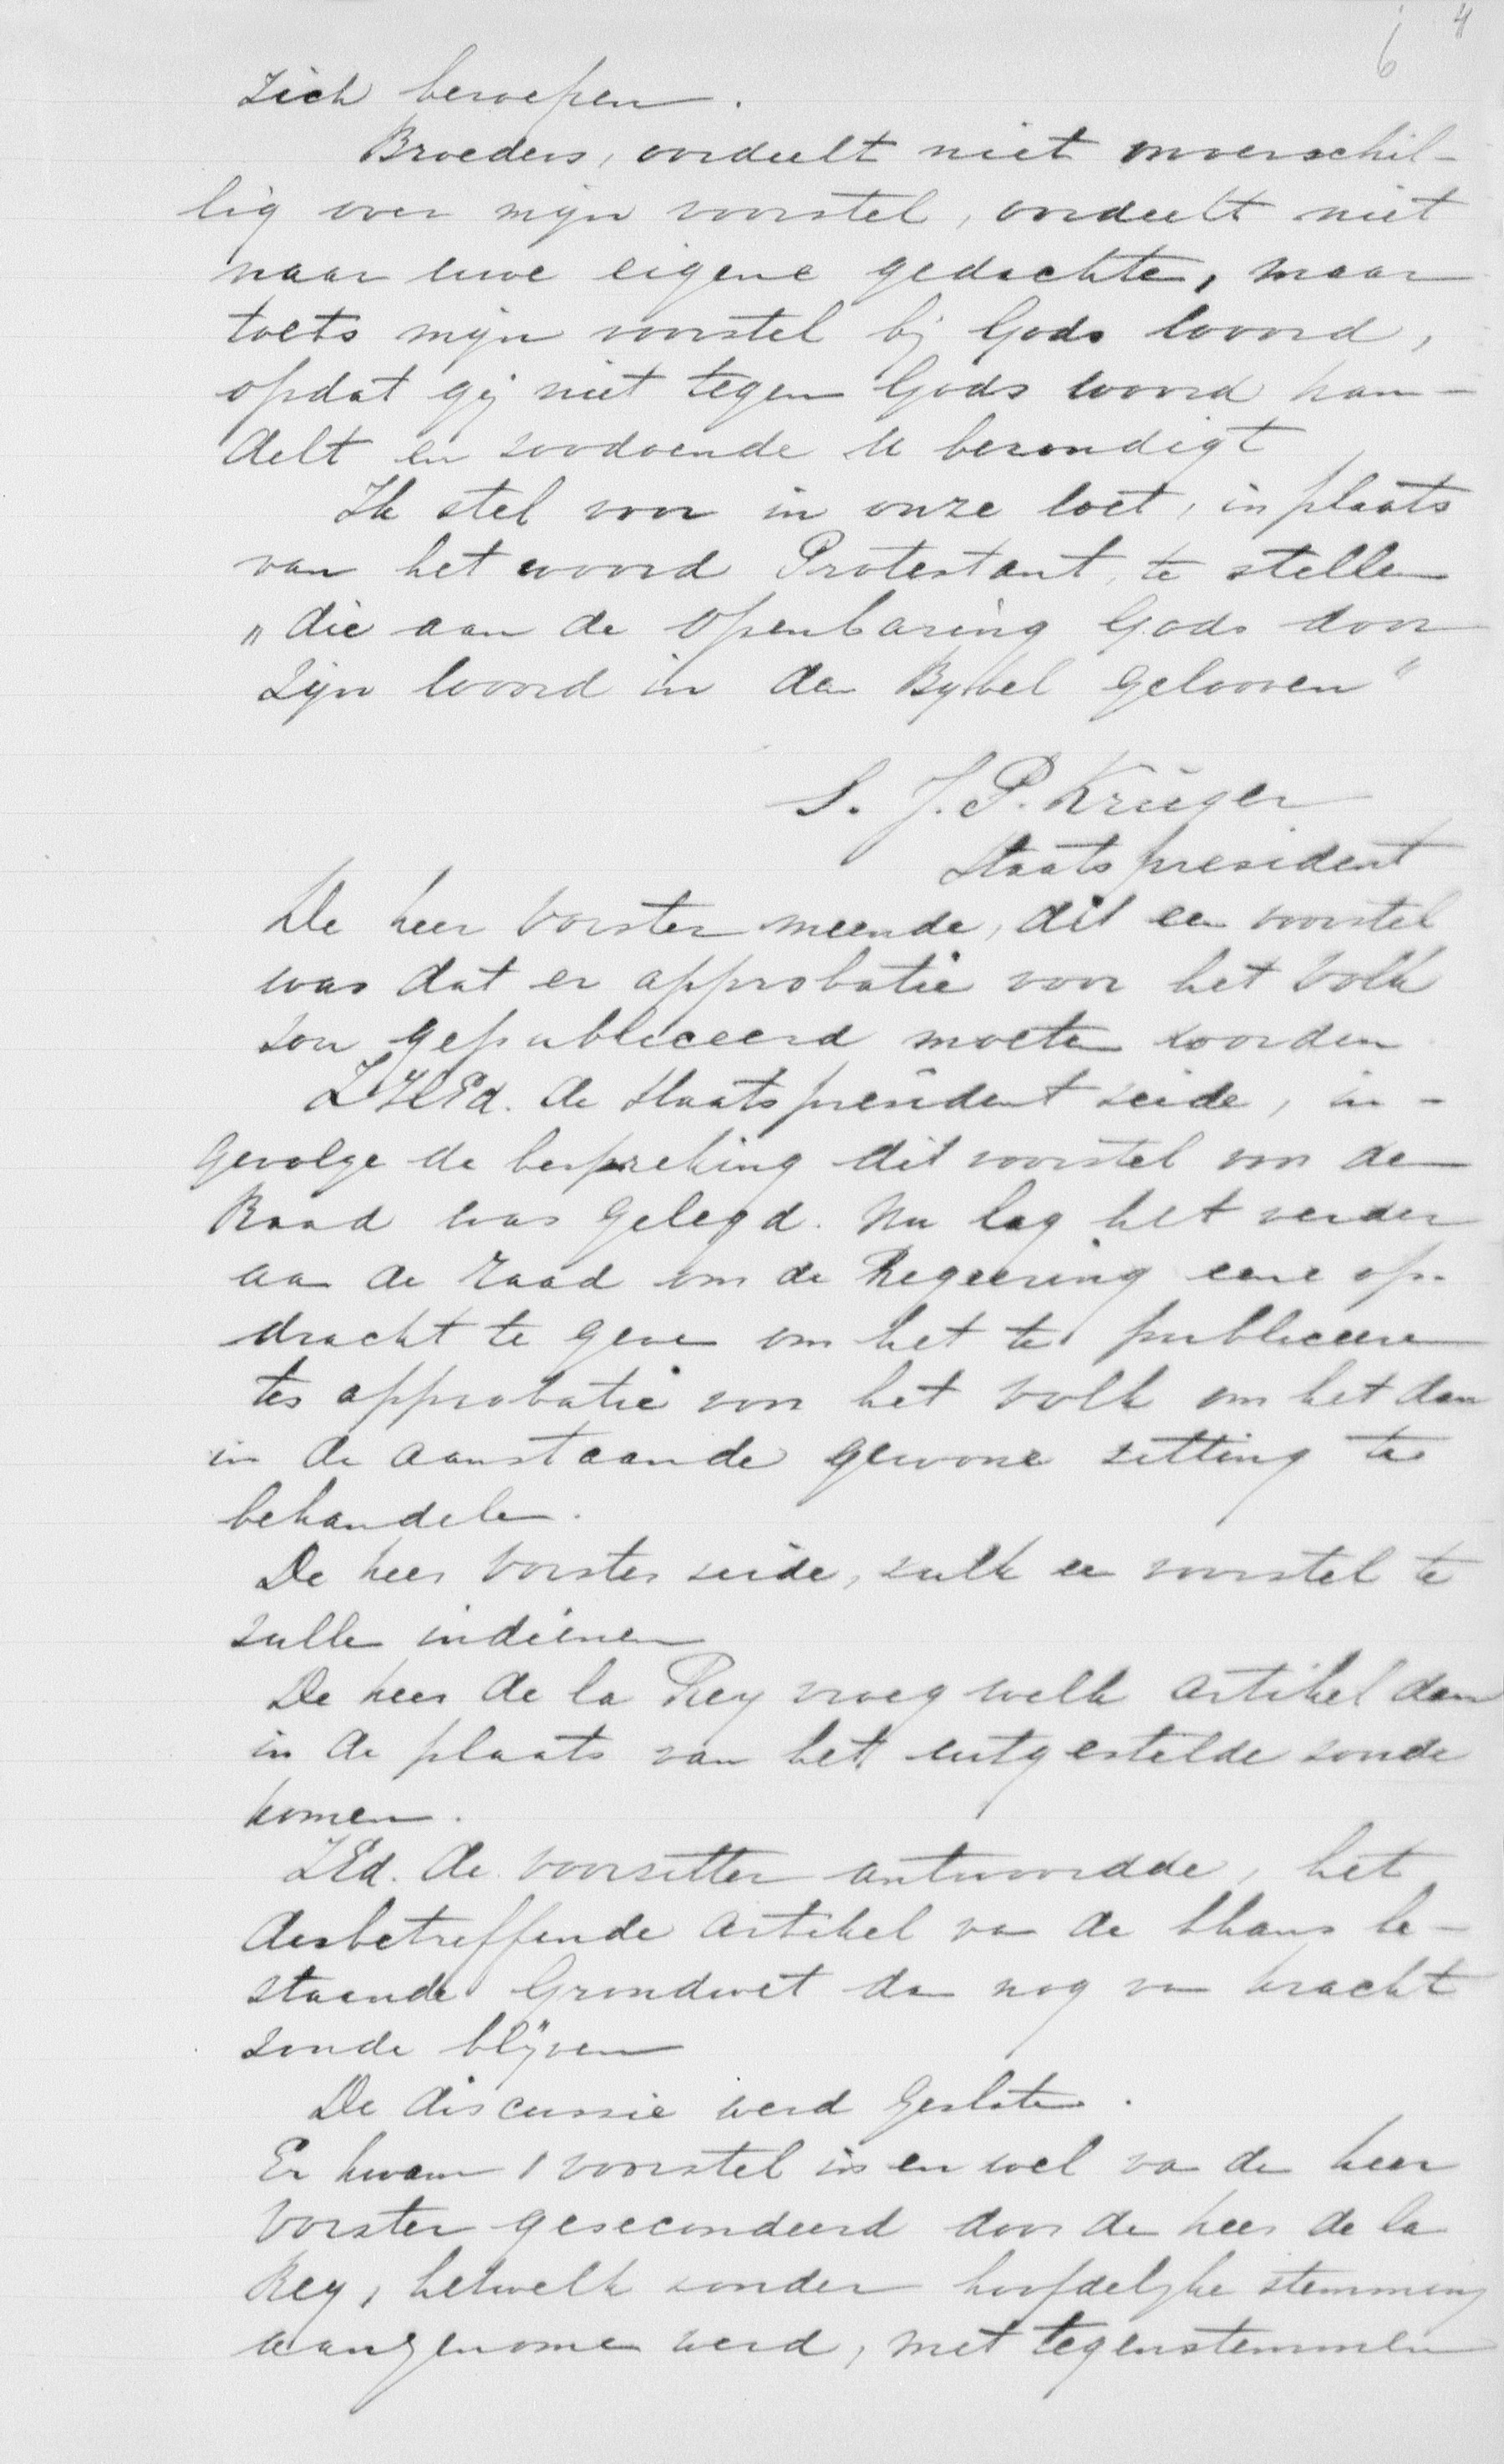 6 4
zich beroepen.
Broeders, oordeelt niet onverschil-
lig over mijn voorstel, oordeelt niet
naar uwe eigene gedachte, maar
toets mijn voorstel bij Gods woord,
opdat gij niet tegen Gods woord han-
delt en zoodoende u bezondigt
Ik stel voor in onze wet, in plaats
van het woord Protestant, te stellen
"die aan de Openbaring Gods door
Zijn woord in den Bybel gelooven"
S. J. P. Krüger
Staatspresident
De heer Vorster meende, dit een voorstel
was dat er approbatie voor het Volk
zou gepubliceerd moeten worden
ZHEd. de Staatspresident zeide, in-
gevolge de bespreking dit voorstel voor de
Raad was gelegd. Nu lag het verder
aan de raad om de Regeering eene op-
dracht te geven om het te publiceere
ter approbatie voor het volk om het dan
in de aanstaande gewone zitting te
behandelen.
De heer Vorster zeide, zulk een voorstel te
zullen indienen
De heer de la Rey vroeg welk artikel dan
in de plaats van het uitgestelde zoude
komen.
ZEd. de voorzitter antwoordde, het
desbetreffende artikel van de thans be-
staande Grondwet dan nog van kracht
zoude blijven
De discussie werd gesloten.
Er kwam 1 voorstel in en wel van den heer
Vorster gesecondeerd door den heer de la
Rey, hetwelk zonder hoofdelyke stemming
aangenomen werd, met tegenstemmen